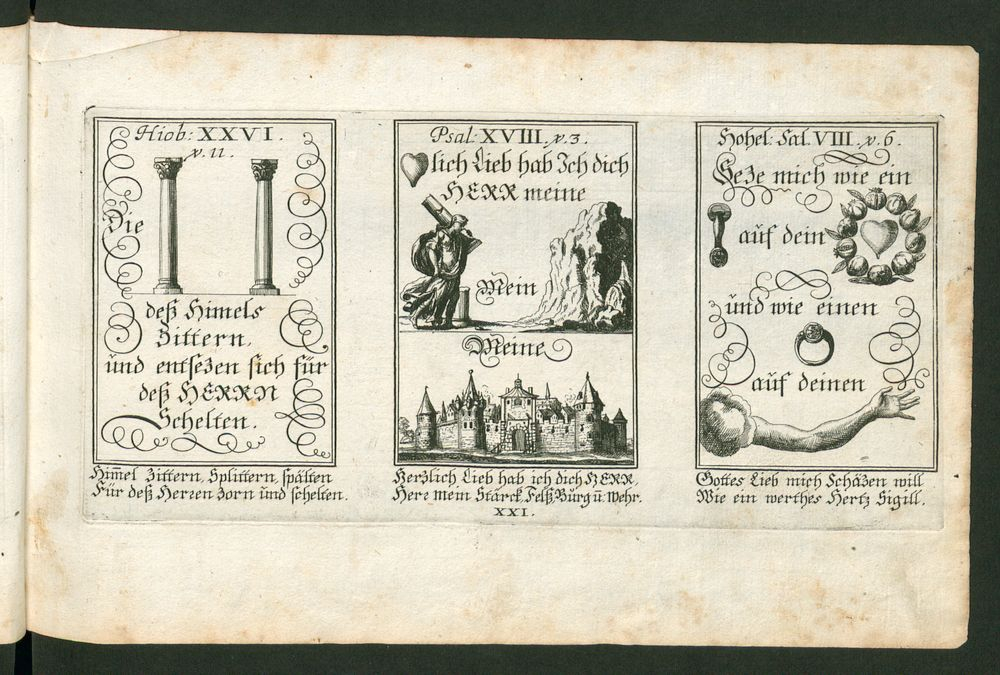 Hiob: XXVI.
v. 11.
Die
deß Himels
Zittern,
und entsezen sich für
deß HERRN
Schelten.
Him̄el Zittern, Splittern, spälten
Für deß Herren Zorn und schelten.
Psal. XVIII. v. 3.
lich Lieb hab Ich dich
HERR meine
Mein
Meine
Hertzlich Lieb hab ich dich HERR
Herr mein Starck, Felß, Burg ū. Wehr.
XXI.
Hohel: Sal. VIII. v. 6.
Seze mich wie ein
auf dein
und wie einen
auf deinen
Gottes Lieb mich Schäzen will
Wie ein werthes Hertz Sigill.